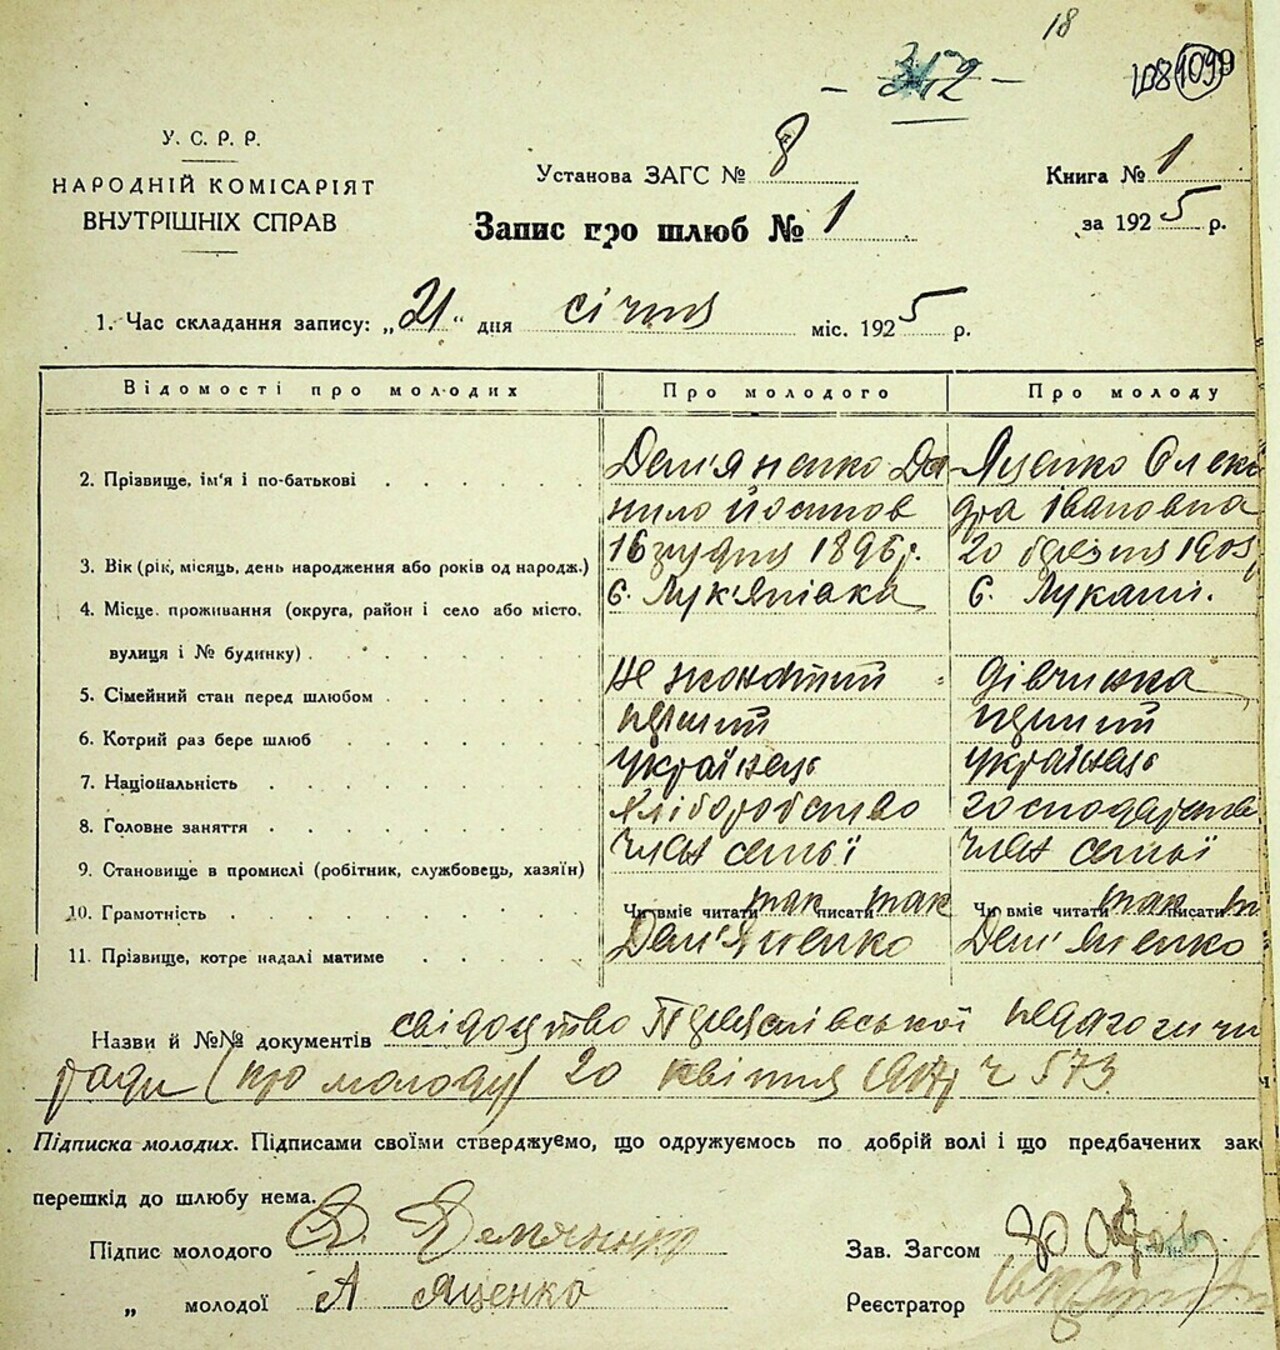 18
108 1099
У. С. Р. Р.
НАРОДНІЙ КОМІСАРІЯТ
ВНУТРІШНІХ СПРАВ
Установа ЗАГС № 8
Книга № 1
Запис про шлюб № 1
за 1925 р.
1. Час складання запису: „21“ дня січня міс. 1925 р.
Відомості про молодих Про молодого Про молоду
2. Прізвище, ім'я і по-батькові Дем'яненко Да Яценко Олекс
нило Йосипов дра Івановна
3. Вік (рік, місяць, день народження або років од народж.) 16 грудня 1896 р. 20 березня 1905
4. Місце проживання (округа, район і село або місто, с. Лук'янівка с. Лукаші.
вулиця і № будинку)
5. Сімейний стан перед шлюбом не жонатий дівчинка
6. Котрий раз бере шлюб перший перший
7. Національність українець
8. Головне заняття хліборобство господарств
9. Становище в промислі (робітник, службовець, хазяїн) член семьї член семьї
10. Грамотність Чи вміє читати так писати так Чи вміє читати так писати т
11. Прізвище, котре надалі матиме Дем'яненко Дем'яненко
Назви й №№ документів свідоцтво Переяслівської педагогичн
ради (про молоду) 20 квітня ч 573
Підписка молодих. Підписами своїми стверджуємо, що одружуємось по добрій волі і що предбачених зак
перешкід до шлюбу нема.
Підпис молодого Д. Демяненко
Зав. Загсом
„ молодої А Яценко
Реєстратор